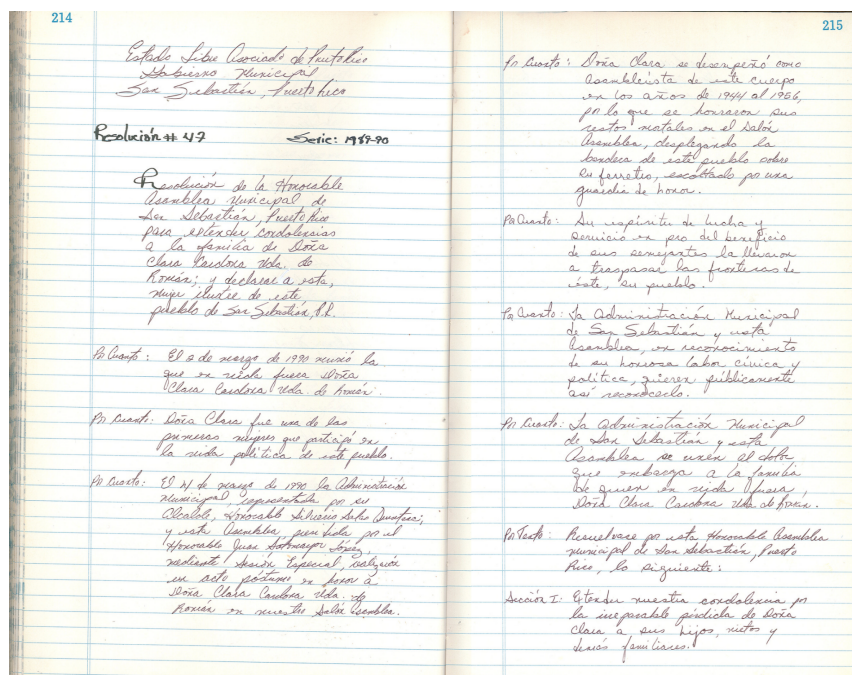 214
Estado Libre Asociado de Puerto Rico
Gobierno Municipal
San Sebastián, Puerto Rico
Resolución # 47 Serie: 1989-90
Resolución de la Honorable
Asamblea Municipal de
San Sebastián, Puerto Rico
para extender condolencias
a la familia de Doña
Clara Cardona Vda. de
Román; y declarar a esta,
mujer ilustre de este
pueblo de San Sebastián, P.R.
Por Cuanto: El 2 de marzo de 1990 murió la
que en vida fuera Doña
Clara Cardona Vda. de Román.
Por Cuanto: Doña Clara fue una de las
primeras mujeres que participó en
la vida política de este pueblo.
Por Cuanto: El 4 de marzo de 1990 la Administración
Municipal representada por su
Alcalde, Honorable
y esta Asamblea presidida por el
Honorable Juan Sotomayor López,
mediante Sesión Especial, realizaron
un acto póstumo en honor a
Doña Clara Cardona Vda. de
Román en nuestro Salón Asamblea.
215
Por Cuanto: Doña Clara se desempeñó como
Asambleísta de este cuerpo
en los años de 1944 al 1956,
por lo que se honraron sus
restos mortales en el Salón
Asamblea, desplegando la
bandera de este pueblo sobre
su ferretro, escoltado por una
guardia de honor.
Por Cuanto: Su espíritu de lucha y
servicio en pro del beneficio
de sus semejantes la llevaron
a traspasar las fronteras de
éste, su pueblo.
Por Cuanto: La Administración Municipal
de San Sebastián y esta
Asamblea, en reconocimiento
de su honrosa labor cívica y
política, quieren públicamente
así reconocerlo.
Por Cuanto: La Administración Municipal
de San Sebastián y esta
Asamblea se unen al dolor
que embarga a la familia
de quien en vida fuera,
Doña Clara Cardona Vda. de Román.
Por Tanto: Resuelvase por esta Honorable Asamblea
Municipal de San Sebastián, Puerto
Rico, lo siguiente:
Sección I: Extender nuestra condolencia por
la ineparable pérdida de Doña
Clara a sus hijos, nietos y
demás familiares.